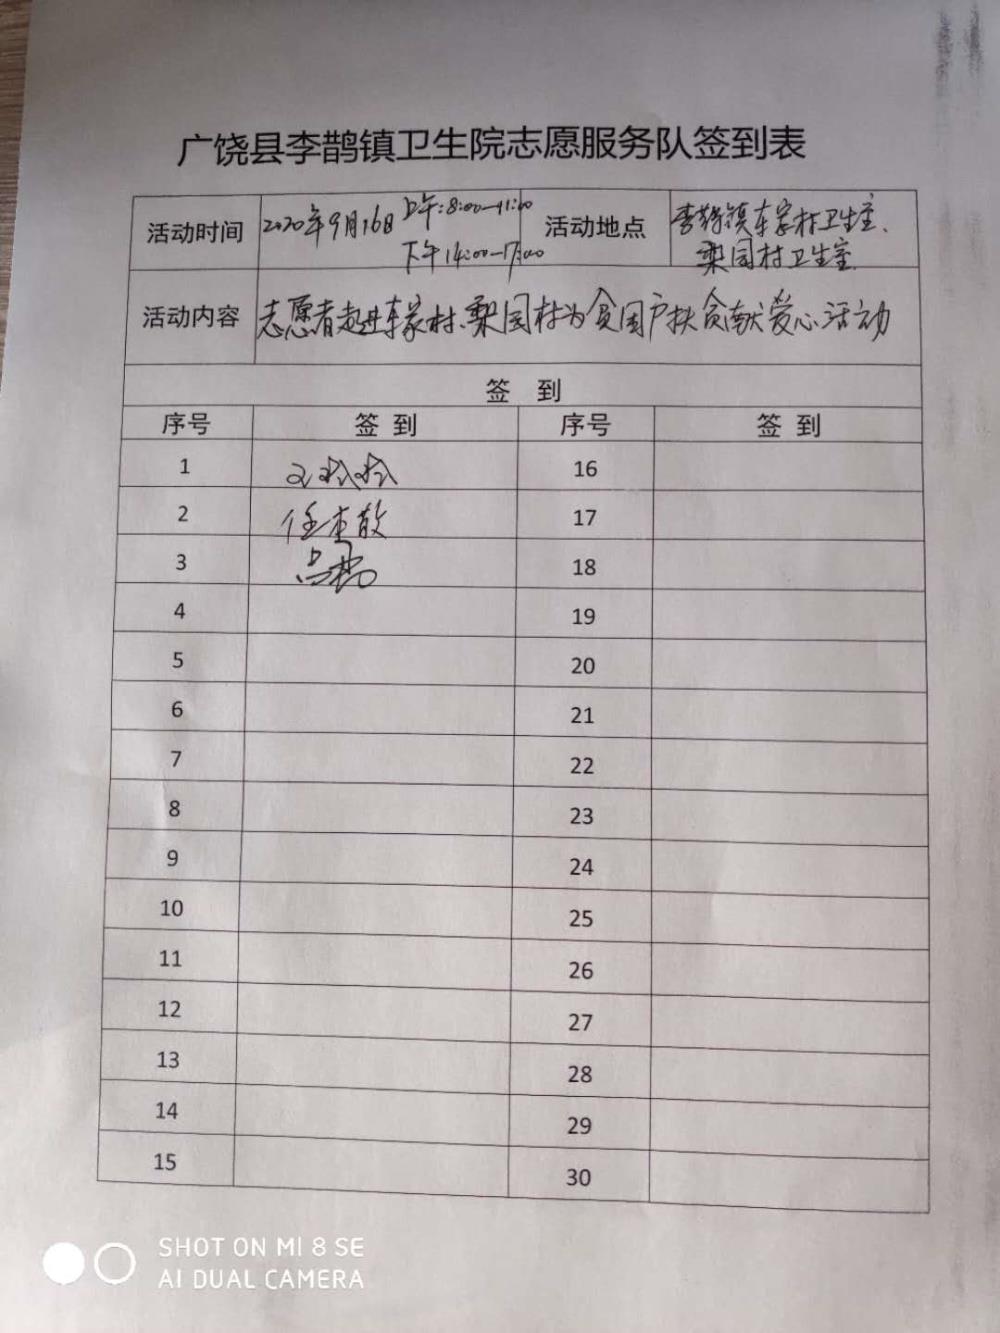 广饶县李鹊镇卫生院志愿服务队签到表
活动时间 2020年9月16日 上午:8:00-11:00 下午14:00-17:00 活动地点 李鹊镇车家村卫生室、梨园村卫生室
活动内容 志愿者赴车家村、梨园村为贫困户扶贫献爱心活动
签 到
序号 签到 序号 签到
1 16
2 任本敬 17
3 18
4 19
5 20
6 21
7 22
8 23
9 24
10 25
11 26
12 27
13 28
14 29
15 30
SHOT ON MI 8 SE
AI DUAL CAMERA